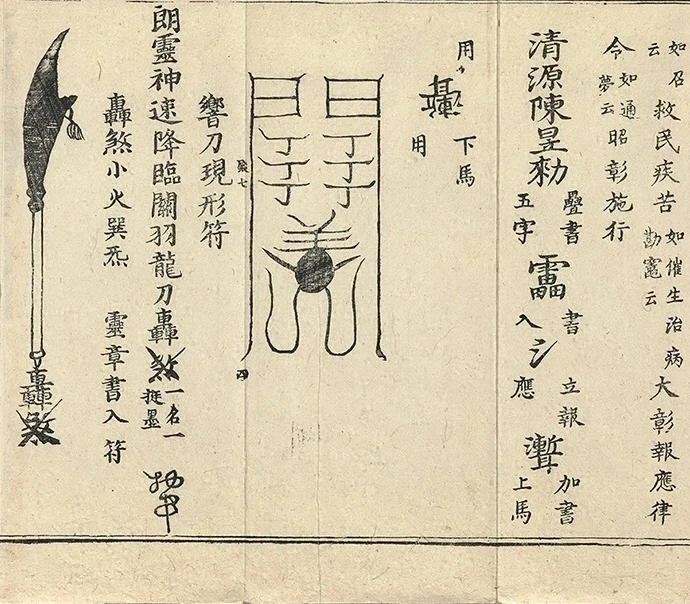 如召云救民疾苦如催生勘竈云治病大彰報應律
令如通夢云昭彰施行
清源陳昱勑疊書五字
書入
立報應
加書上馬
用
下馬用
猴七
四
響刀現形符
朗靈神速降臨關羽龍刀轟煞一名一
轟煞小火巽炁靈章書入符
轟煞